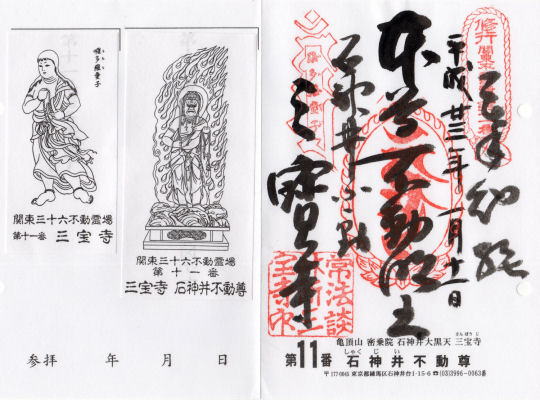 嚩多羅童子
關東三十六不動霊場
第十一番 三宝寺
關東三十六不動霊場
第十一番
三宝寺 石神井不動尊
参拝 年 月 日
平成廿三年一月十一日
本尊不動明王
石神井不動
三宝寺
常法談
亀頂山 密乗院 石神井大黒天 三宝寺
さんぽうじ
第11番 石神井不動尊
しゃくじい
〒177-0045 東京都練馬区石神井台1-15-6 ☎(03)3996-0063番